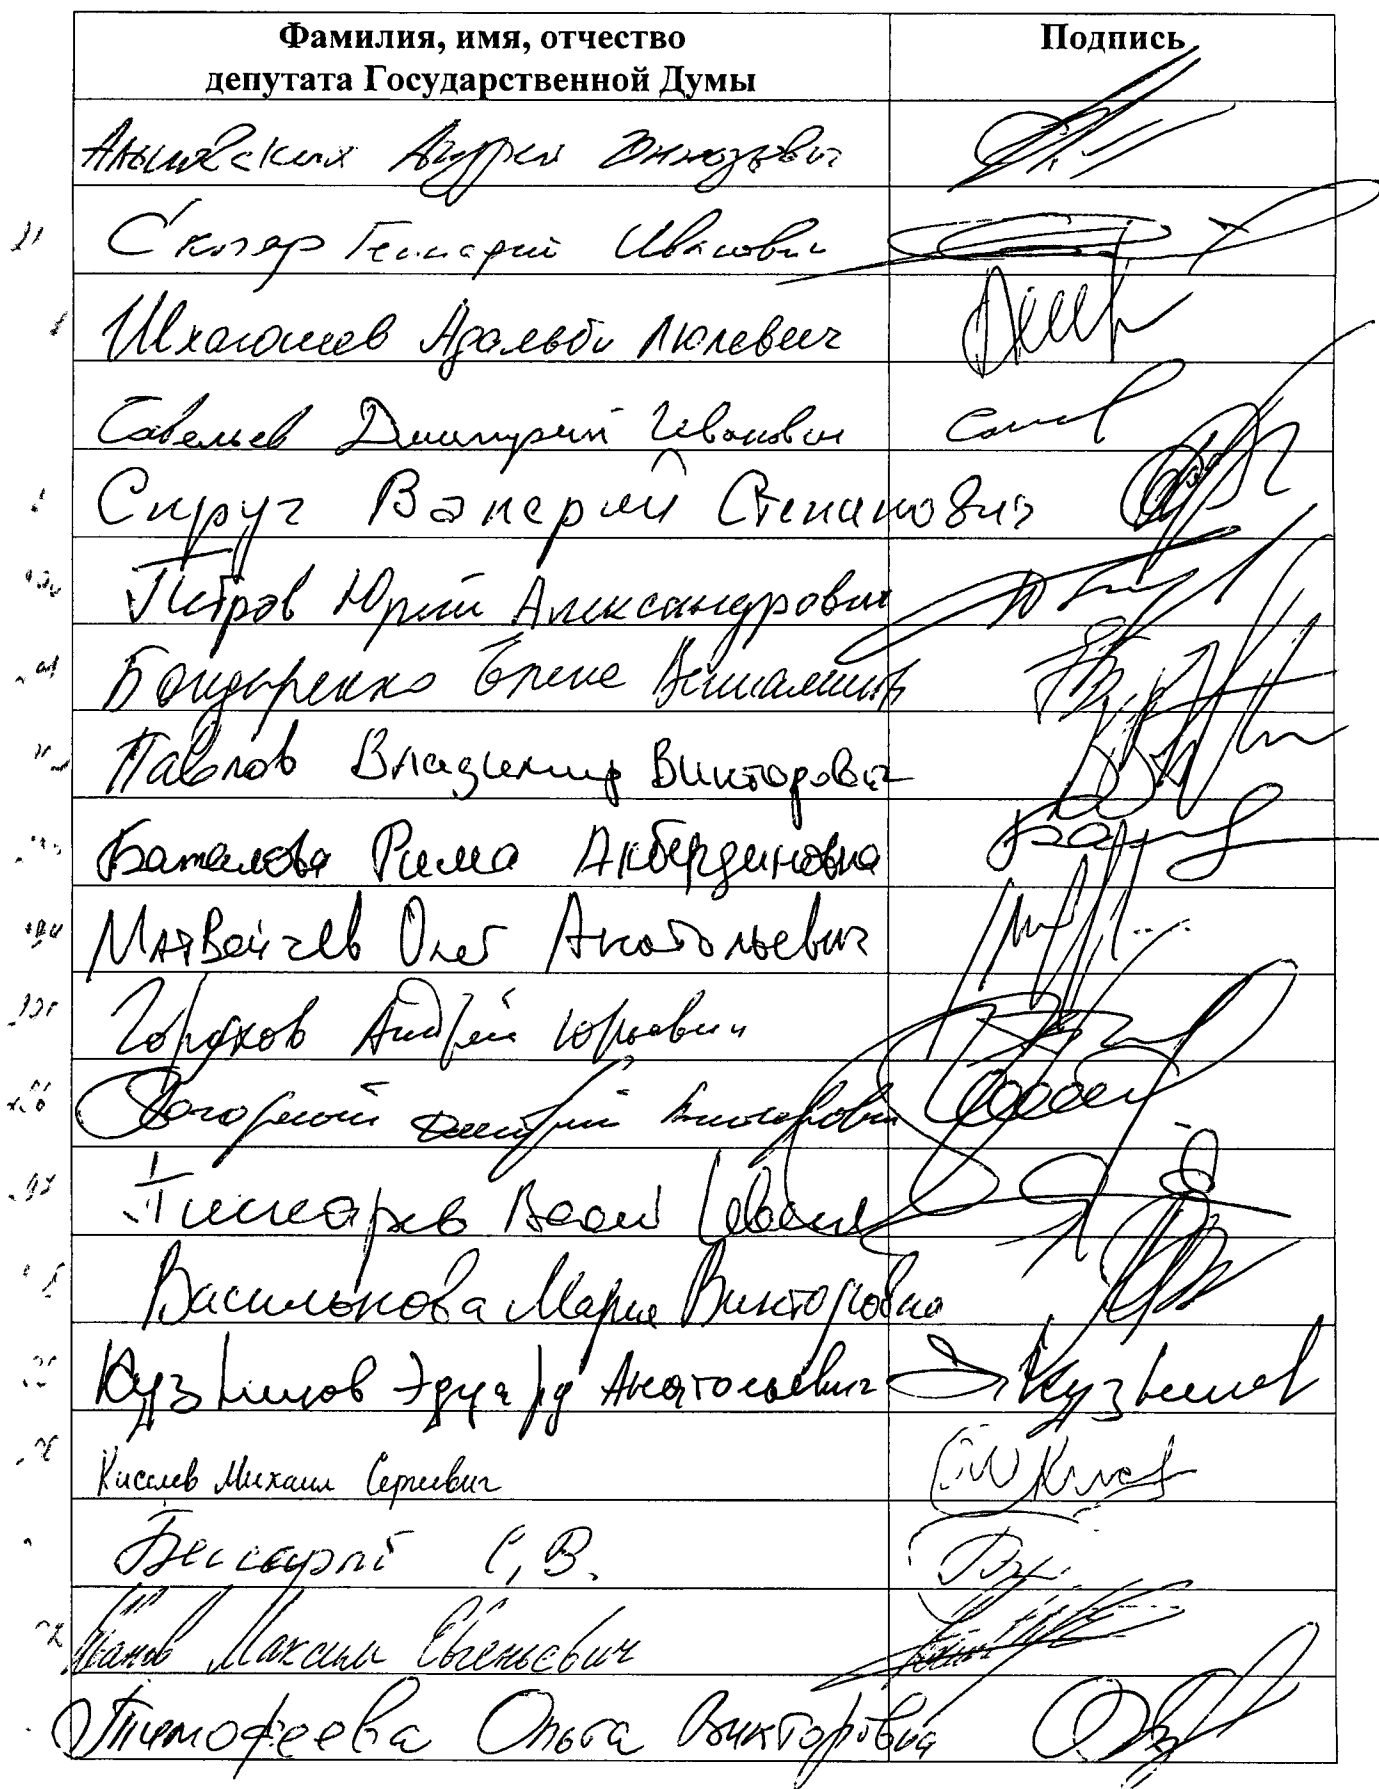 Фамилия, имя, отчество
депутата Государственной Думы
Подпись
Андрей
Скляр Геннадий Иванович
Шхагошев Адальби Люлевич
Савельев Дмитрий Иванович
Скруг Валерий Степанович
Петров Юрий Александрович
Бондаренко Елена Вениаминов
Павлов Владимир Викторович
Баталова Рима Акбердиновна
Матвейчев Олег Анатольевич
Горохов Андрей Юрьевич
Погорелый Дмитрий Викторович
Пискарев Васил Иванов
Василькова Мария Викторовна
Кузнецов Эдуард Анатольевич Кузнецов
Киселев Михаил Сергеевич
Бессараб С.В.
Иванов Максим Евгеньевич
Тимофеева Ольга Викторовна